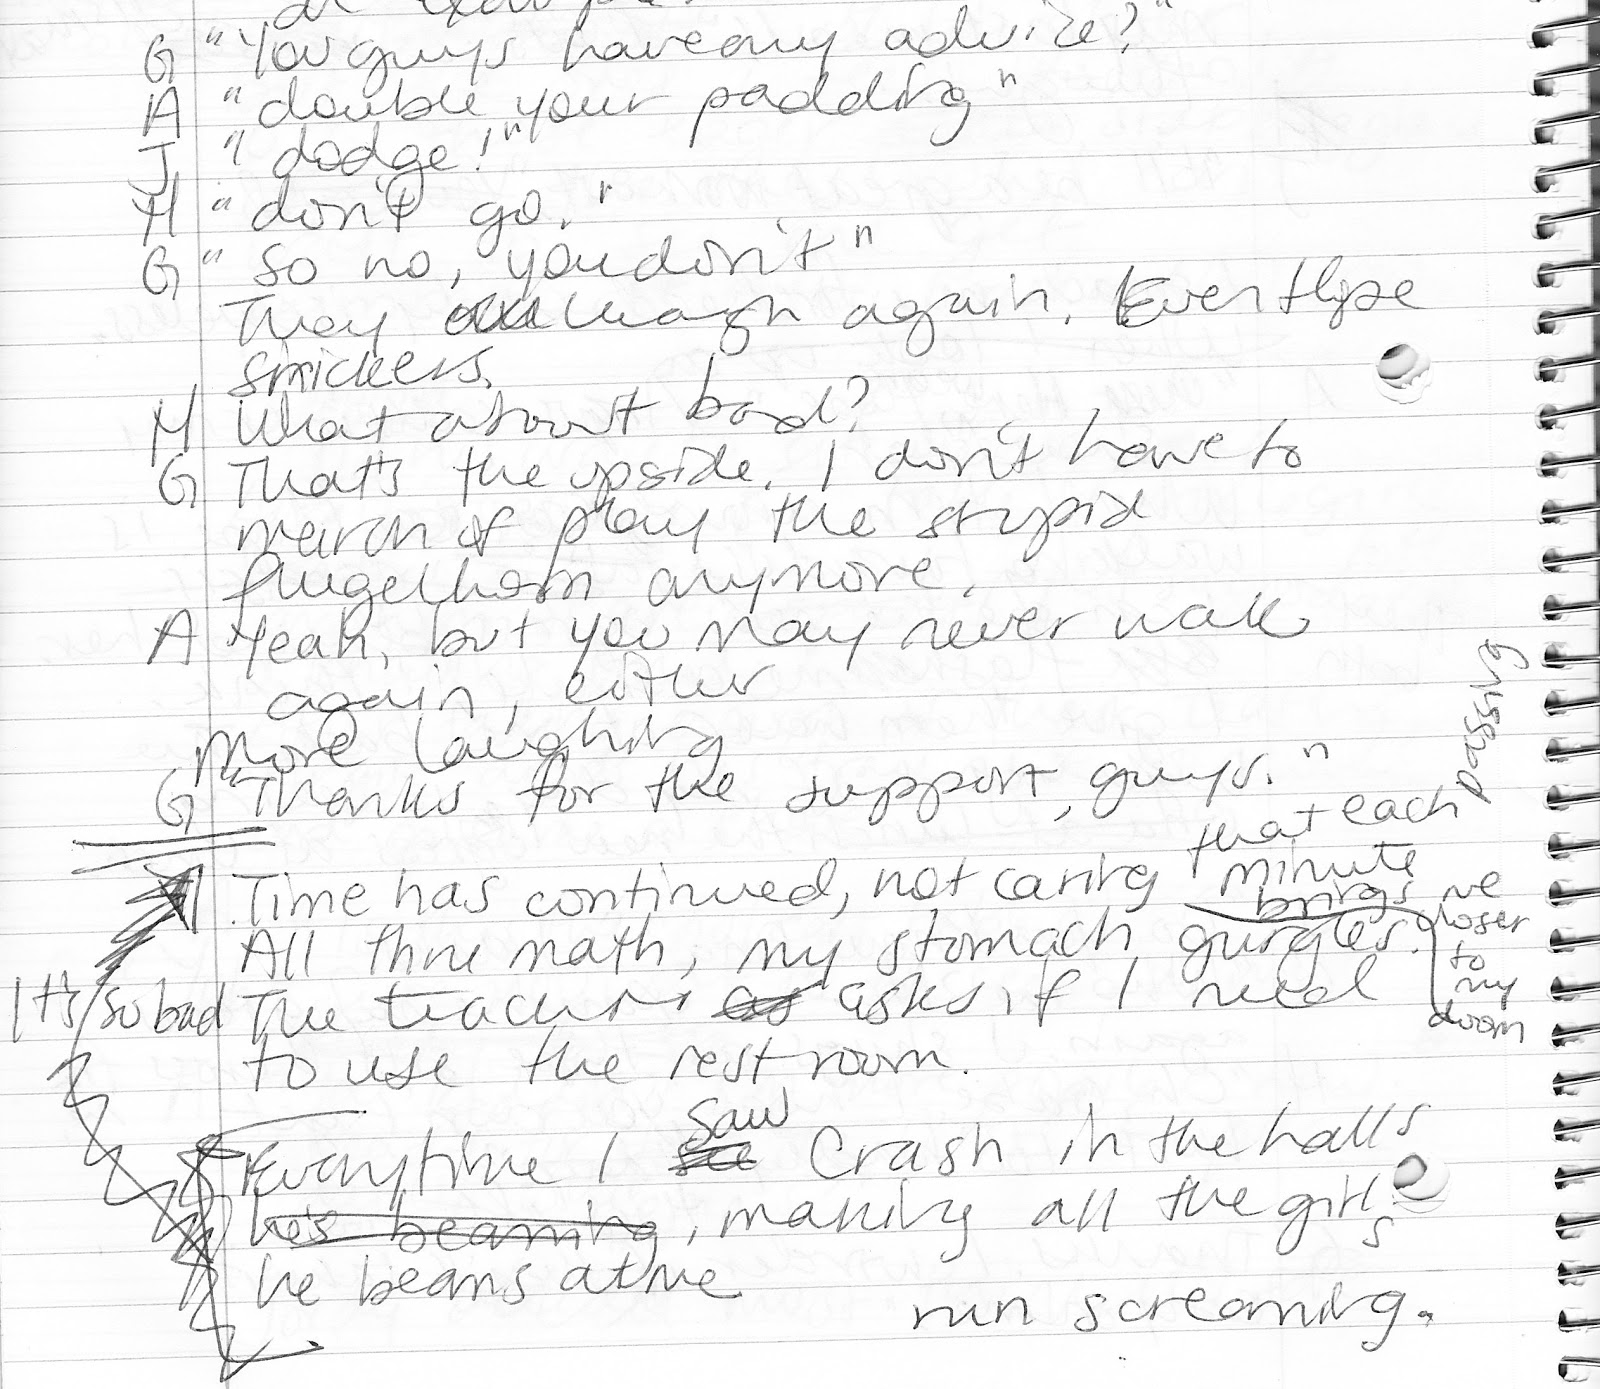 G "You guys have any advice?"
A "double your padding"
J "dodge!"
H "don't go."
G "So no, you don't"
They all laugh again. Even
snickers.
H What about band?
G That's the upside. I don't have to
march or play the stupid
flugelhorn anymore.
A Yeah, but you may never walk
again, either
More laughing
G "Thanks for the support, guys."
Time has continued, not caring that each passing
minute brings me closer to my doom
All thru math, my stomach gurgles.
It's so bad The teacher asks if I need
to use the restroom.
Everytime I see saw Crash in the halls
he's beaming, making all the girls
he beams at me
run screaming.